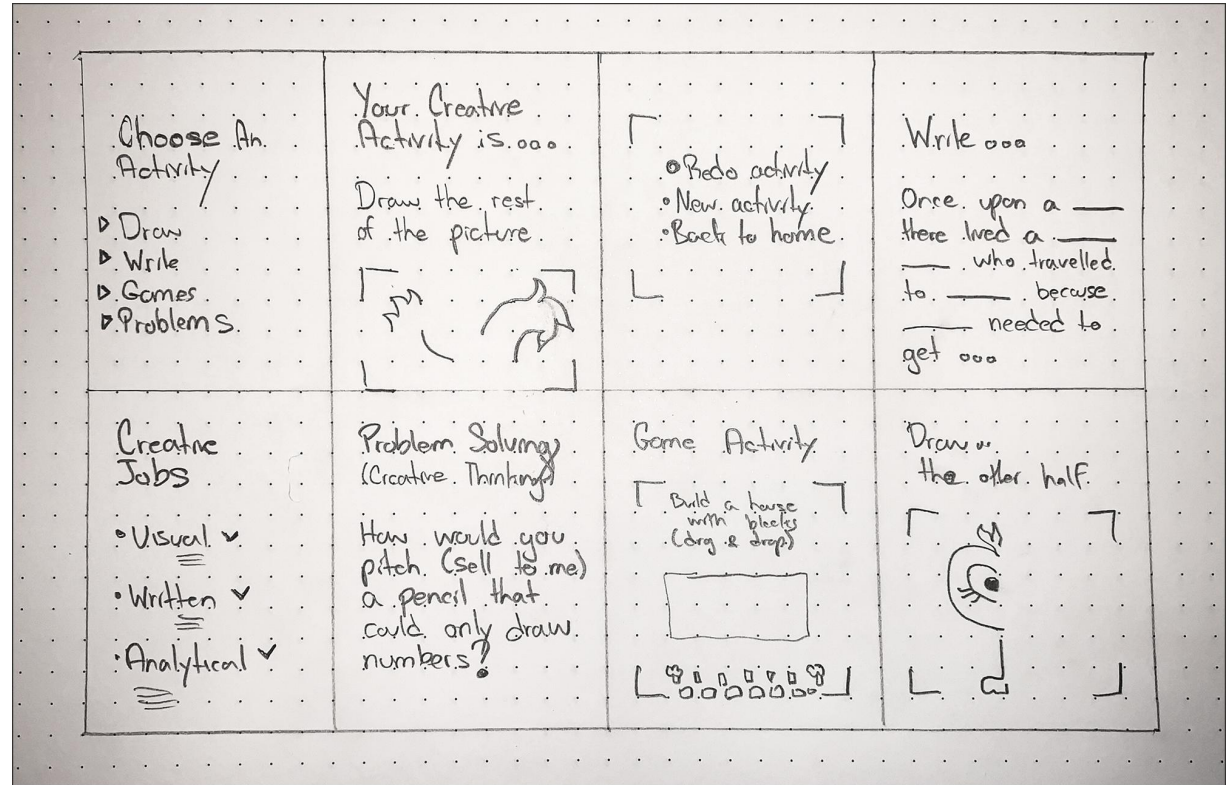 Choose An
Activity
Draw
Write
Games
Problems
Your Creative
Activity is...
Draw the rest
of the picture
Redo activity
New activity
Back to home
Write ...
Once upon a ___
there lived a ___
___ who travelled
to ___ because
___ needed to
get ...
Creative
Jobs
Visual ✓
Written ✓
Analytical ✓
Problem Solving
(Creative Thinking)
How would you
pitch (sell to me)
a pencil that
could only draw
numbers?
Game Activity
Build a house
with blocks
(drag & drop)
Draw ..
the other half